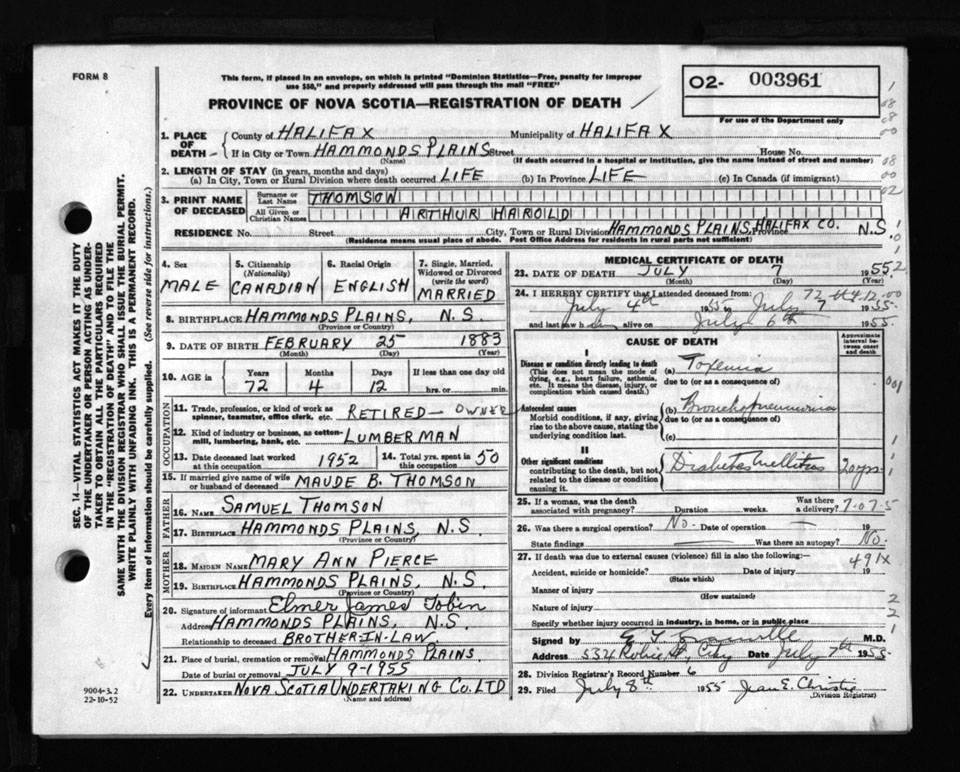 FORM 8
This form, if placed in an envelope, on which is printed "Dominion Statistics—Free, penalty for improper
use $50," and properly addressed will pass through the mail "FREE"
PROVINCE OF NOVA SCOTIA—REGISTRATION OF DEATH
02- 003961
For use of the Department only
1. PLACE OF DEATH— County of HALIFAX Municipality of HALIFAX
If in City or Town HAMMONDS PLAINS Street House No.
(Name) (If death occurred in a hospital or institution, give the name instead of street and number)
2. LENGTH OF STAY (in years, months and days)
(a) In City, Town or Rural Division where death occurred LIFE (b) In Province LIFE (c) In Canada (if immigrant)
3. PRINT NAME OF DECEASED Surname or Last Name THOMSON
All Given or Christian Names ARTHUR HAROLD
RESIDENCE No. Street City, Town or Rural Division HAMMONDS PLAINS, HALIFAX CO. Province N.S.
(Residence means usual place of abode. Post Office Address for residents in rural parts not sufficient)
4. Sex MALE
5. Citizenship (Nationality) CANADIAN
6. Racial Origin ENGLISH
7. Single, Married, Widowed or Divorced (write the word) MARRIED
8. BIRTHPLACE HAMMONDS PLAINS, N.S.
(Province or Country)
9. DATE OF BIRTH FEBRUARY 25 1883
(Month) (Day) (Year)
10. AGE in Years Months Days If less than one day old
72 4 12 hrs. or min.
OCCUPATION
11. Trade, profession, or kind of work as spinner, teamster, office clerk, etc. RETIRED— OWNER
12. Kind of industry or business, as cotton-mill, lumbering, bank, etc. LUMBERMAN
13. Date deceased last worked at this occupation 1952
14. Total yrs. spent in this occupation 50
15. If married give name of wife or husband of deceased MAUDE B. THOMSON
FATHER
16. NAME SAMUEL THOMSON
17. BIRTHPLACE HAMMONDS PLAINS, N.S
(Province or Country)
MOTHER
18. MAIDEN NAME MARY ANN PIERCE
19. BIRTHPLACE HAMMONDS PLAINS, N.S.
(Province or Country)
20. Signature of informant Elmer James Tobin
Address HAMMONDS PLAINS, N.S.
Relationship to deceased BROTHER-IN-LAW.
21. Place of burial, cremation or removal HAMMONDS PLAINS
Date of burial or removal JULY 9-1955
22. UNDERTAKER NOVA SCOTIA UNDERTAKING CO. LTD
(Name and address)
MEDICAL CERTIFICATE OF DEATH
23. DATE OF DEATH JULY 7 1955
(Month) (Day) (Year)
24. I HEREBY CERTIFY that I attended deceased from:
July 4th 1955 to July 7 1955
and last saw him alive on July 6th 1955.
CAUSE OF DEATH
Approximate interval between onset and death
I
Disease or condition directly leading to death
(This does not mean the mode of dying, e.g., heart failure, asthenia, etc. It means the disease, injury, or complication which caused death.)
(a) Toxemia
due to (or as a consequence of)
Antecedent causes
Morbid conditions, if any, giving rise to the above cause, stating the underlying condition last.
(b) Bronchopneumonia
due to (or as a consequence of)
(c)
II
Other significant conditions
contributing to the death, but not related to the disease or condition causing it.
Diabetes Mellitus 20 yrs.
25. If a woman, was the death associated with pregnancy? Duration weeks. Was there a delivery? 7-07-5
26. Was there a surgical operation? No. Date of operation — 19
State findings Was there an autopsy? No.
27. If death was due to external causes (violence) fill in also the following:—
491X
Accident, suicide or homicide? Date of injury 19
(State which)
Manner of injury
(How sustained)
Nature of injury
Specify whether injury occurred in industry, in home, or in public place
Signed by M.D.
Address 534 Robie St., City Date July 7th 1955-
28. Division Registrar's Record Number 6
29. Filed July 8th 1955 Jean E. Christie
(Division Registrar)
SEC. 14—VITAL STATISTICS ACT MAKES IT THE DUTY
OF THE UNDERTAKER OR PERSON ACTING AS UNDER-
TAKER TO OBTAIN ALL THE PARTICULARS REQUIRED
IN THE "REGISTRATION OF DEATH" AND TO FILE THE
SAME WITH THE DIVISION REGISTRAR WHO SHALL ISSUE THE BURIAL PERMIT.
WRITE PLAINLY WITH UNFADING INK. THIS IS A PERMANENT RECORD.
Every item of information should be carefully supplied. (See reverse side for instructions.)
9004-3.2
22-10-52